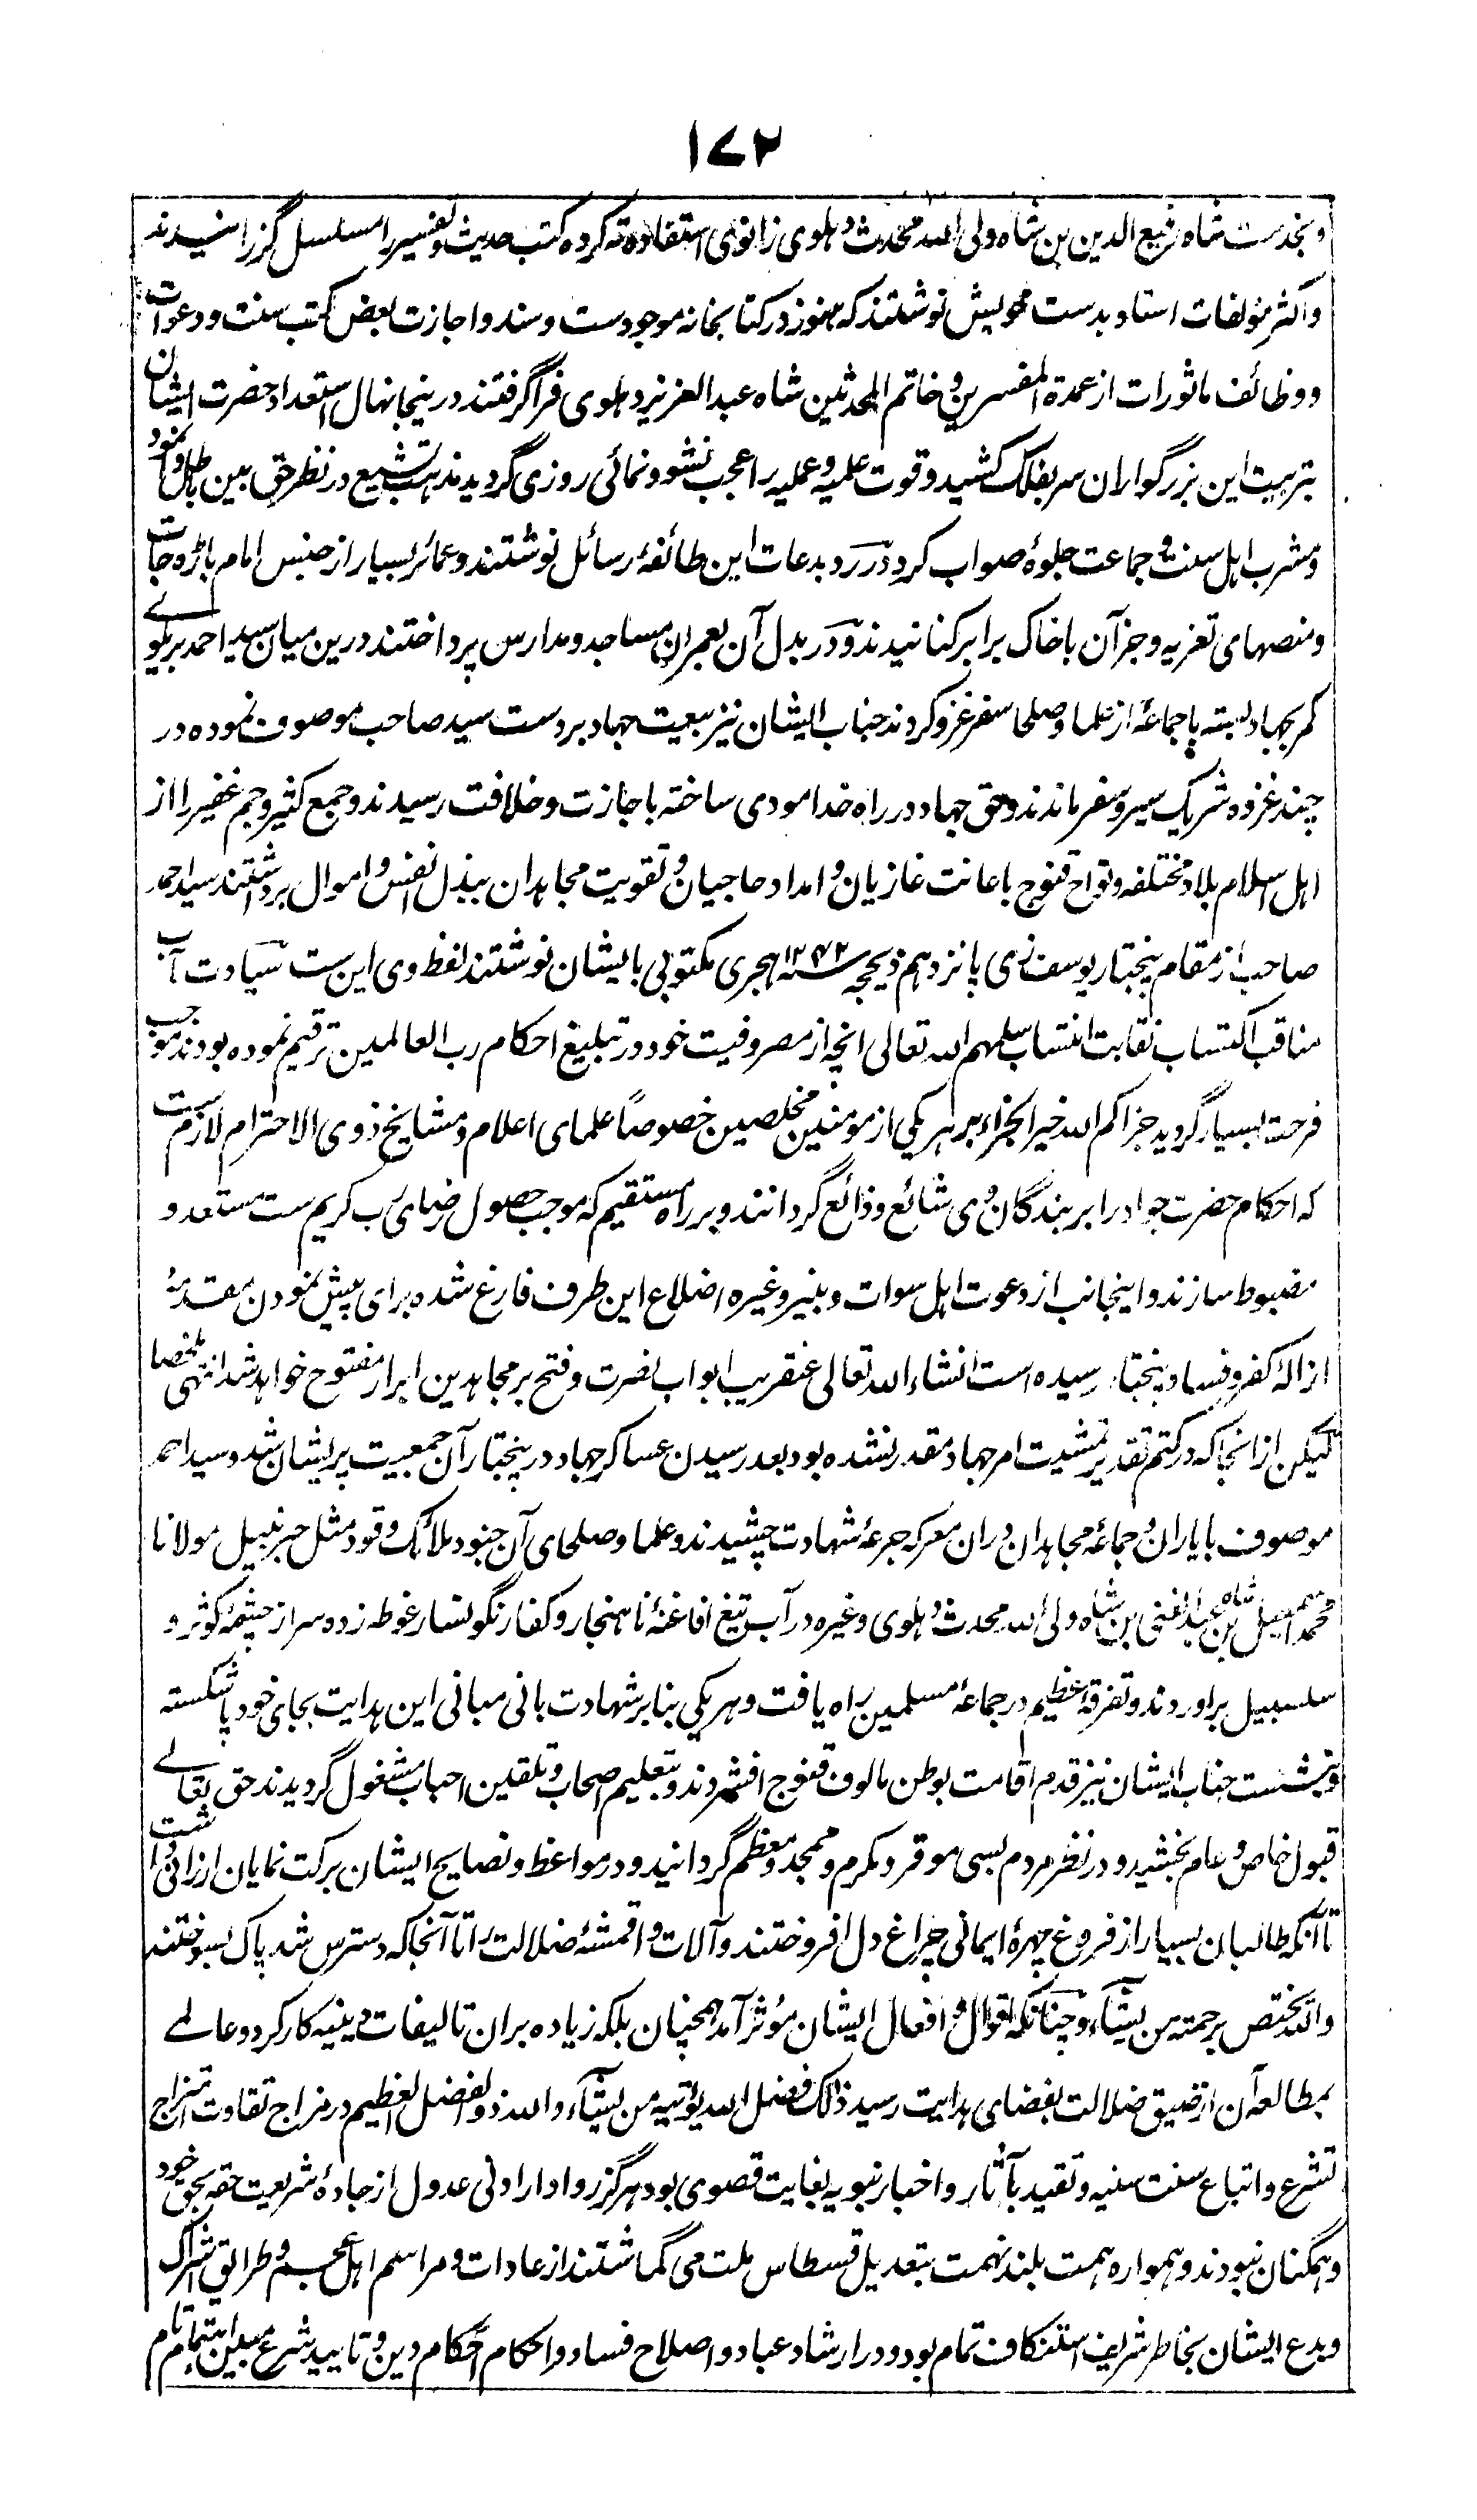 ١٧٢
و بخدمت شاه رفیع الدین بن شاه ولی الله محدث دہلوی زانوی استفاده ته کرده کتب حدیث و تفسیر را مسلسل گزرانیدند
و اکثر مؤلفات استاد بدست خویش نوشتند که هنوز در کتابخانه موجودست و سند و اجازت بعض کتب سنت و دعوات
و وظائف ماثورات از عمدة المفسرین و خاتم المحدثین شاه عبد العزیز دہلوی فرا گرفتند درینجا نهال استعداد حضرت ایشان
بتربیت این بزرگواران سر بفلک کشید و قوت علمیه و عملیه را عجب نشو و نمائی روزی گردید مذهب تشیع در نظر حق بین باطل وا نمود
و مشرب اهل سنت و جماعت جلوهٔ صواب کرد در رد بدعات این طائفه رسائل نوشتند و عمائر بسیار از جنس امام باڑه جات
و منصهای تعزیه و جز آن با خاک برابر کنانیدند و در بدل آن بعمران مساجد و مدارس پرداختند درین میان سید احمد بریلوی
کمر بجهاد بسته با جماعهٔ از علما و صلحا سفر غزو کردند جناب ایشان نیز بیعت جهاد بر دست سید صاحب موصوف نموده در
چند غزوه شریک سیر و سفر ماندند و حق جهاد در راه خدا مودی ساخته باجازت و خلافت رسیدند و جمع کثیر و جم غفیر را از
اهل اسلام بلاد مختلفه و نواح قنوج باعانت غازیان و امداد حاجیان و تقویت مجاهدان ببذل انفس و اموال برداشتند سید احمد
صاحب از مقام پنجتار یوسف زی پانزدهم ذیحجه سنه ١٢٤٢ هجری مکتوبی بایشان نوشتند لفظ وی این ست سیادت مآب
مناقب اکتساب نقابت انتساب سلمهم الله تعالی انچه از مصروفیت خود در تبلیغ احکام رب العالمین ترقیم نموده بودند موجب
فرحت بسیار گردید جزاکم الله خیر الجزاء بر هر یکی از مومنین مخلصین خصوصاً علمای اعلام و مشایخ ذوی الاحترام لازم ست
که احکام حضرت جواد را بر بندگان وی شائع و ذائع گردانند و بر راه مستقیم که موجب حصول رضای رب کریم ست مستعد و
مضبوط سازند و اینجانب از دعوت اهل سوات و بنیر و غیره اضلاع این طرف فارغ شده برای پیش نمودن مقدمهٔ
ازالهٔ کفر و فساد بپنجتار رسیده است انشاء الله تعالی عنقریب ابواب نصرت و فتح بر مجاهدین ابرار مفتوح خواهد شد انتهی ملخصا
لیکن از انجا که در کتم تقدیر تمشیت امر جهاد مقدر نشده بود بعد رسیدن عساکر جهاد در پنجتار آن جمعیت پریشان شد و سید احمد
موصوف با یاران و جماعهٔ مجاهدان دران معرکه جرعهٔ شهادت چشیدند و علما و صلحای آن جنود ملائک وقود مثل حبر نبیل مولانا
محمد اسمعیل بن شاه عبد الغنی بن شاه ولی الله محدث دہلوی و غیره در آب تیغ افاغنهٔ ناهنجار و کفار نگونسار غوطه زده سر از چشمهٔ کوثر و
سلسبیل براوردند و تفرقهٔ عظیم در جماعهٔ مسلمین راه یافت و هر یکی بنا بر شهادت بانی مبانی این هدایت بجای خود پا شکسته
بنشست جناب ایشان نیز قدم اقامت بوطن مالوف قنوج افشردند و بتعلیم اصحاب و تلقین احباب مشغول گردیدند حق تعالے
قبول خاص و عام بخشید و در نظر مردم بسی موقر و مکرم و ممجد و معظم گردانید و در مواعظ و نصایح ایشان برکت نمایان ارزانی داشت
تا آنکه طالبان بسیار از فروغ چهرهٔ ایمانی چراغ دل افروختند و آلات و اقمشهٔ ضلالت را تا آنجا که دسترس شد پاک بسوختند
والله یختص برحمته من یشاء و چنانکه اقوال و افعال ایشان مؤثر آمد همچنان بلکه زیاده بران تالیفات دینیه کار کرد و عالمے
بمطالعهٔ آن از ضیق ضلالت بفضای هدایت رسید ذلک فضل الله یؤتیه من یشاء والله ذو الفضل العظیم در مزاج تقاوت امتزاج
تشرع و اتباع سنت سنیه و تقید بآثار و اخبار نبویه بغایت قصوی بود هرگز روادار ادنی عدول از جادهٔ شریعت حقه بحق خود
و همگنان نبودند و همواره همت بلند نهمت بتعدیل قسطاس ملت می گماشتند از عادات و مراسم اهل عجم و طرائق اشراک
و بدع ایشان بخاطر شریف استنکاف تمام بود و در ارشاد عباد و اصلاح فساد و احکام احکام دین و تایید شرع مبین اهتمام تام